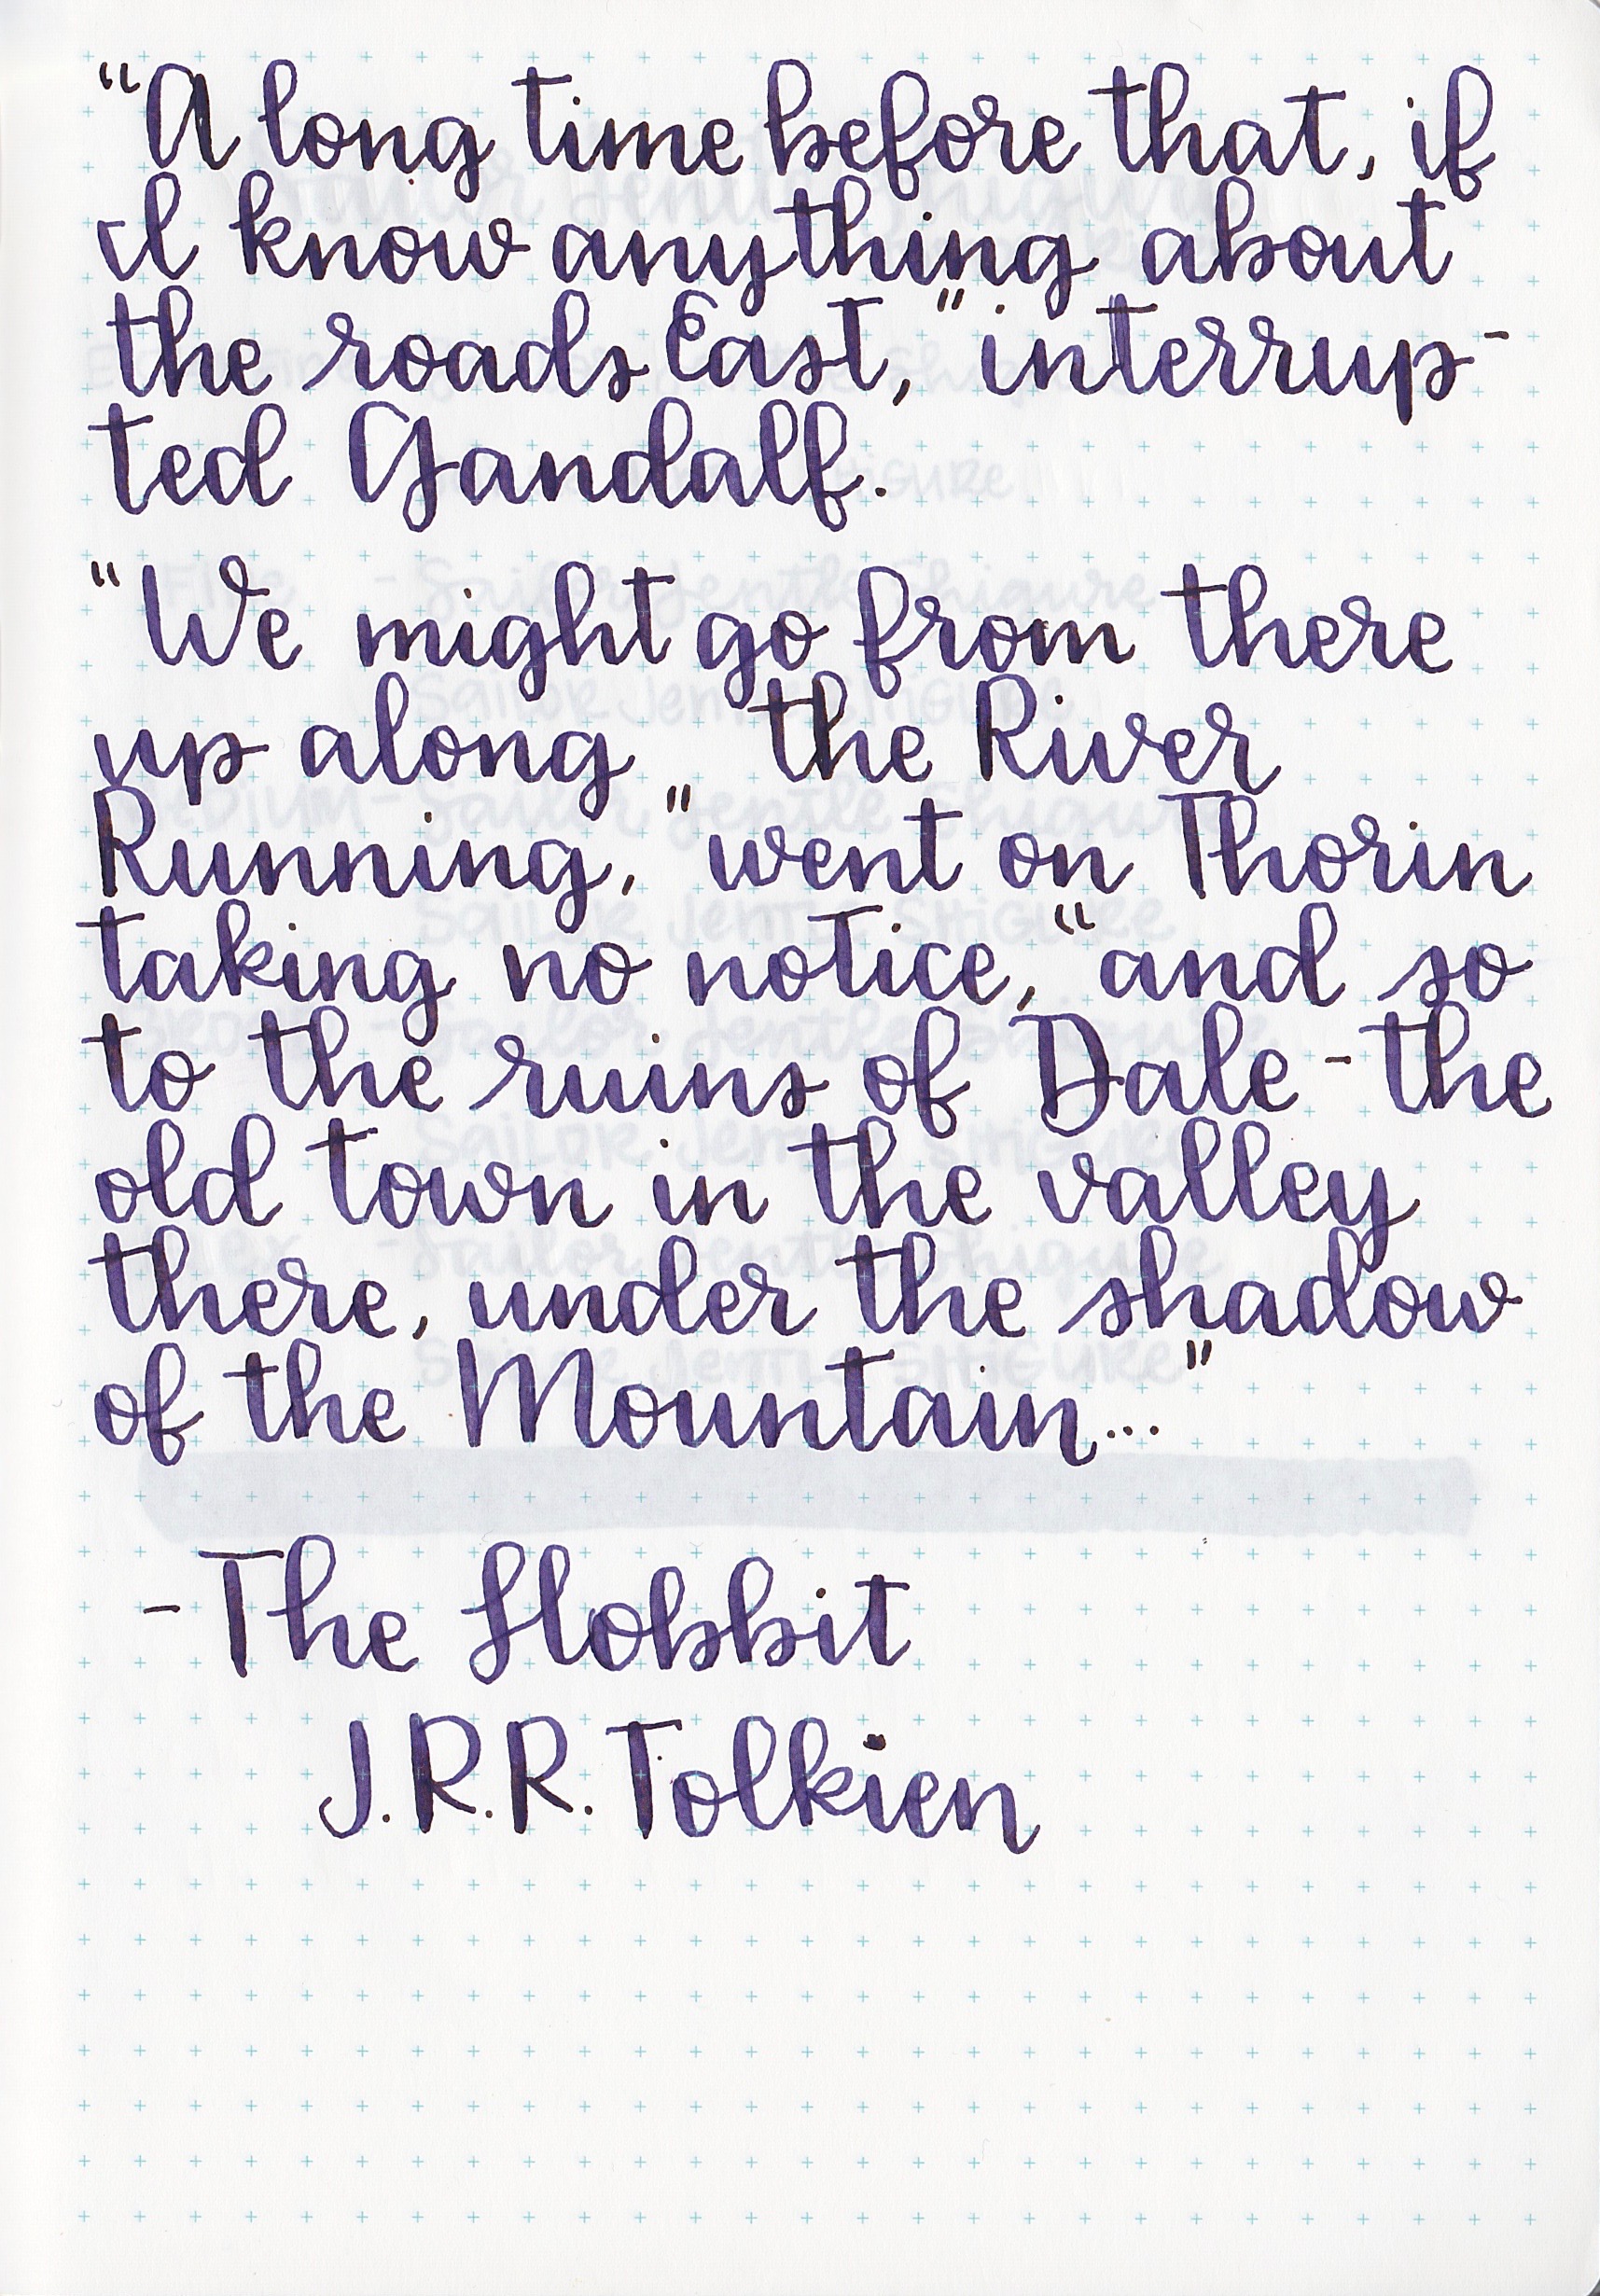 “A long time before that, if
I know anything about
the roads East,” interrup-
ted Gandalf.
“We might go from there
up along the River
Running,” went on Thorin
taking no notice, “and so
to the ruins of Dale - the
old town in the valley
there, under the shadow
of the Mountain...”
- The Hobbit
J.R.R. Tolkien